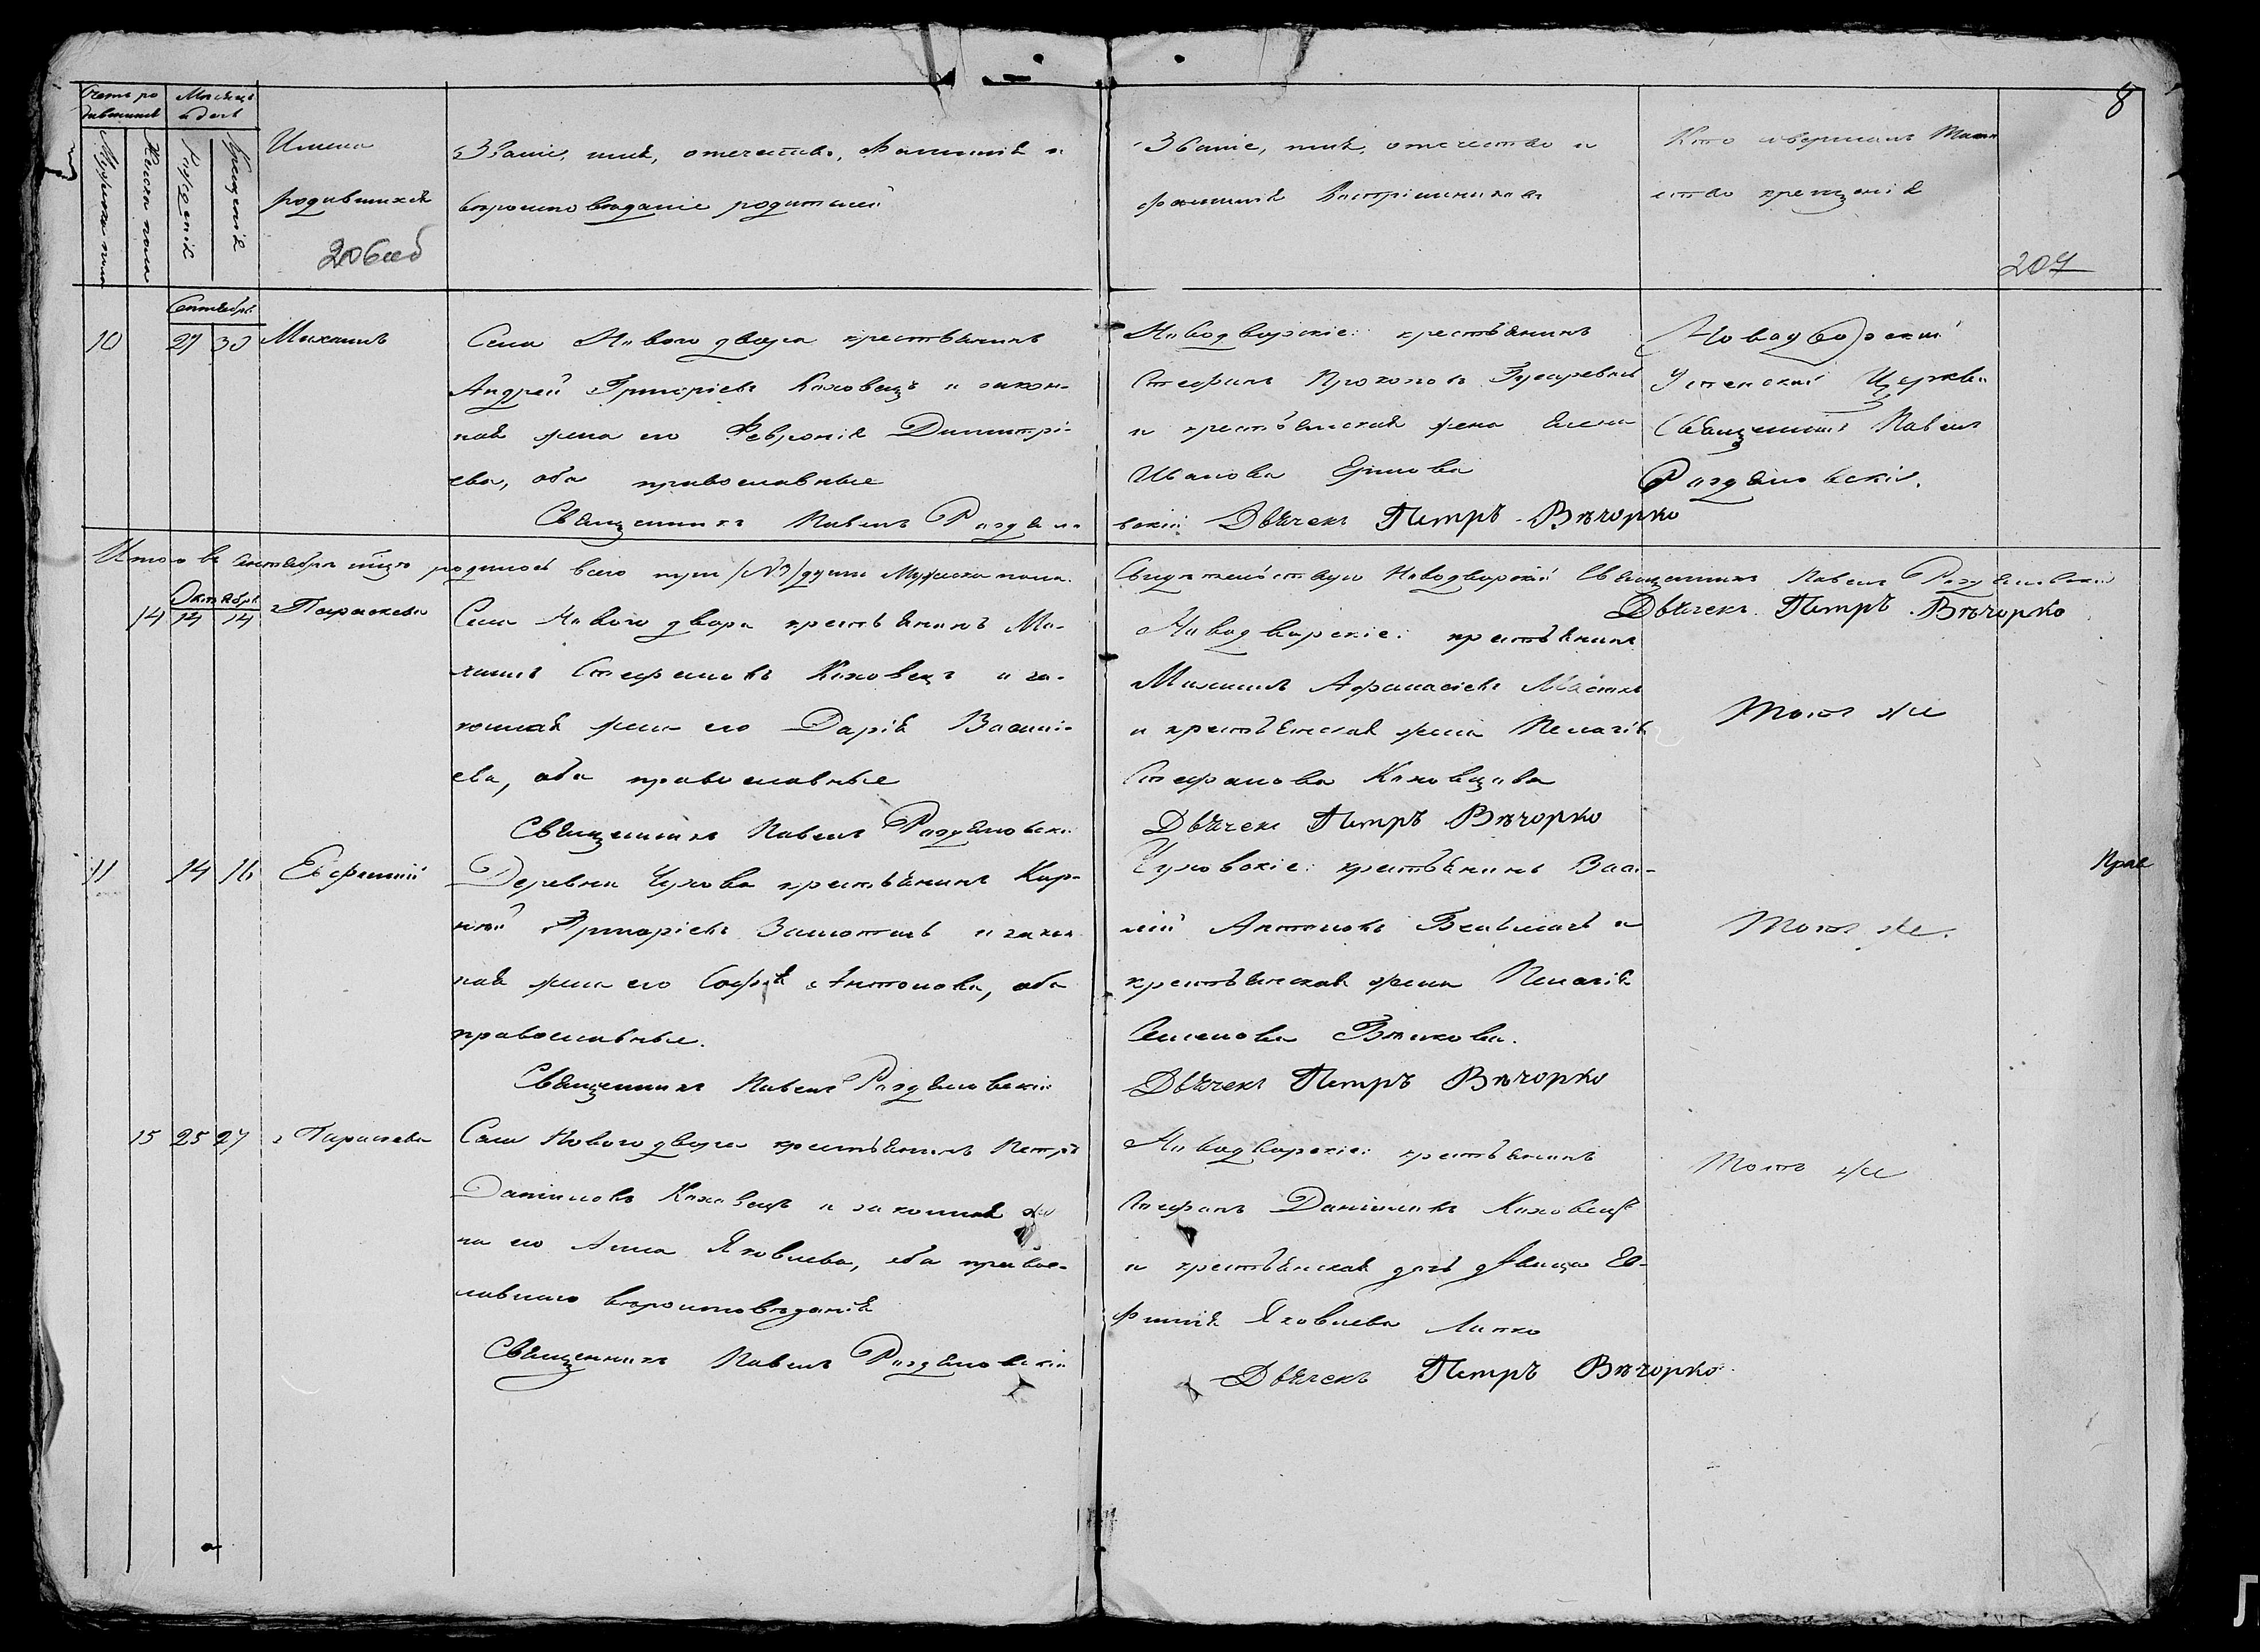 8
Счетъ ро
дившихся
Мѣсяцъ
и день
Мужеска пола
Женска пола
Рожденія
Крещенія
Имена
родившихся
206об
Званіе, имя, отечество, Фамилія и
вѣроисповѣданіе родителей
Званіе, имя, отечество и
фамилія Воспріемниковъ
Кто совершалъ Таин
ство крещенія
207
Сентябрь
10 29 30 Михаилъ
Села Новаго двора крестьянинъ
Андрей Григоріевъ Каховецъ и закон-
ная жена его Февронія Димитрі-
ева, оба православные
Священникъ Павелъ Раздяло-
Новодворскіе: крестьянинъ
Стефанъ Прокоповъ
и крестьянская жена Елена
Иванова
вскій Дьячекъ Петръ Вѣчорко
Новодворской
Успенской Церкви
Священникъ Павелъ
Раздяловскій.
Итого въ Сентябрѣ мѣсяцѣ родилось всего три /№3/ душъ Мужеска пола.
Свидѣтельствую Новодворскій Священникъ Павелъ Раздяловскій
Дьячекъ Петръ Вѣчорко
Октябрь
14 14 14 Параскева
Села Новаго двора крестьянинъ Ми-
хаилъ Стефановъ Каховецъ и за-
конная жена его Дарія Василі-
ева, оба православные
Священникъ Павелъ Раздяловскій
Новодворскіе: крестьянинъ
Михаилъ Афанасіевъ
и крестьянская жена Пелагія
Стефанова Каховцова
Дьячекъ Петръ Вѣчорко
Тотъ же
11 14 16 Евфимій
Деревни Чухова крестьянинъ Кир-
Григоріевъ и закон
ная жена его Софія Антонова, оба
православные.
Священникъ Павелъ Раздяловскій
Чуховскіе: крестьянинъ Васи-
лій Антоновъ и
крестьянская жена Пелагія
Семенова
Дьячекъ Петръ Вѣчорко
Тотъ же.
15 25 27 Параскева
Села Новаго двора крестьянинъ Петръ
Даніиловъ Каховецъ и законная же
на его Анна Яковлева, оба право-
славнаго вѣроисповѣданія
Священникъ Павелъ Раздяловскій
Новодворскіе: крестьянинъ
Стефанъ Даніиловъ Каховецъ
и крестьянская дочь дѣвица Ев-
фимія Яковлева Липко
Дьячекъ Петръ Вѣчорко
Тотъ же